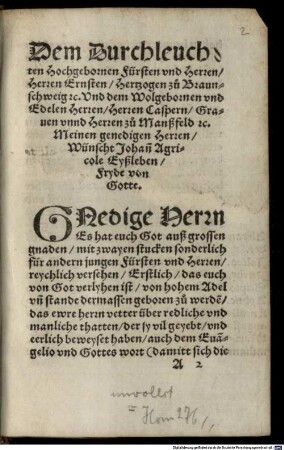 2
Dem Durchleuch⸗
ten Hochgebornen Fürsten vnd Herren/
Herren Ernsten / Hertzogen zů Braun⸗
schweig ꝛc. Vnd dem Wolgebornen vnd
Edelen Herren/Herren Caspern/ Gra⸗
uen vnnd Herren zů Manßfeld ꝛc.
Meinen genedigen Herren/
Wünscht Johañ Agri⸗
cole Eyßleben/
Fryde von
Gotte.
GNedige Herrn
Es hat euch Got auß grossen
gnaden / mit zwayen stucken sonderlich
für andern jungen Fürsten vnd Herren/
reychlich versehen / Erstlich / das euch
von Got verlyhen ist / von hohem Adel
vñ stande dermassen geboren zů werdē/
das ewre herrn vetter über redliche vnd
manliche thatten/ der sy vil geyebt/vnd
eerlich beweyset haben / auch dem Euā⸗
gelio vnd Gottes wort (damitt sich die
A 2
unvollst
= Hom 276/,